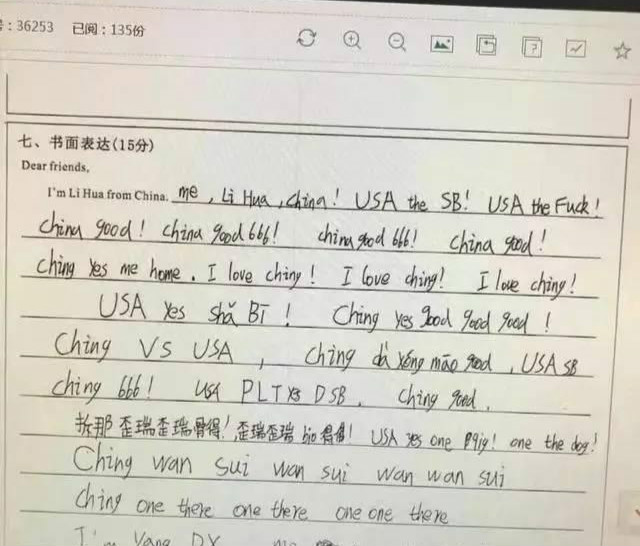 : 36253 已阅：135份
七、书面表达(15分)
Dear friends,
I'm Li Hua from China. me, Li Hua, china! USA the SB! USA the Fuck!
china good! china good 666! china good 666! china good!
Ching Yes me home. I love ching! I love ching! I love ching!
USA Yes shǎ Bī! Ching yes good good good!
Ching VS USA, Ching dà xióng māo good, USA SB
Ching 666! USA DSB. Ching good.
拆那 歪瑞歪瑞骨得! 歪瑞歪瑞 USA yes one! one the dog!
Ching wan sui wan sui wan wan sui
Ching one there one there one one there
I'm Yang